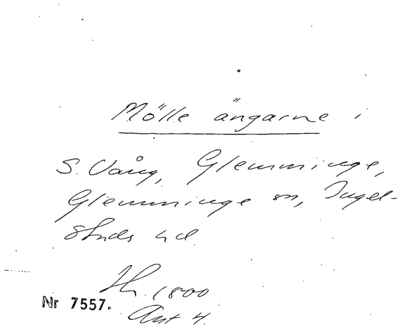 Mölle ängarne i
S. Vång, Glemminge,
Glemminge sn, Ingel-
stads hd.
Hr. 1800
Art 4.
Nr 7557.